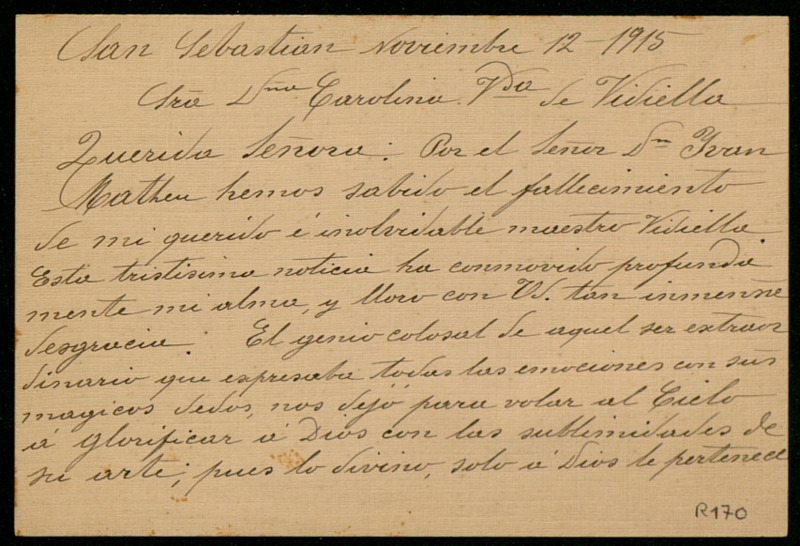 San Sebastian Noviembre 12-1915
Sra Dña Carolina Vda de Vidiella
Querida Señora: Por el Señor Dn Yvan
Matheu hemos sabido el fallecimiento
de mi querido é inolvidable maestro Vidiella
Esta tristisima noticia ha conmovido profunda
mente mi alma, y lloro con Vd. tan inmensa
desgracia. El genio colosal de aquel ser extraor
dinario que expresaba todas las emociones con sus
magicos dedos, nos dejó para volar al Cielo
á glorificar á Dios con las sublimidades de
su arte; pues lo divino, solo á Dios le pertenece
R170